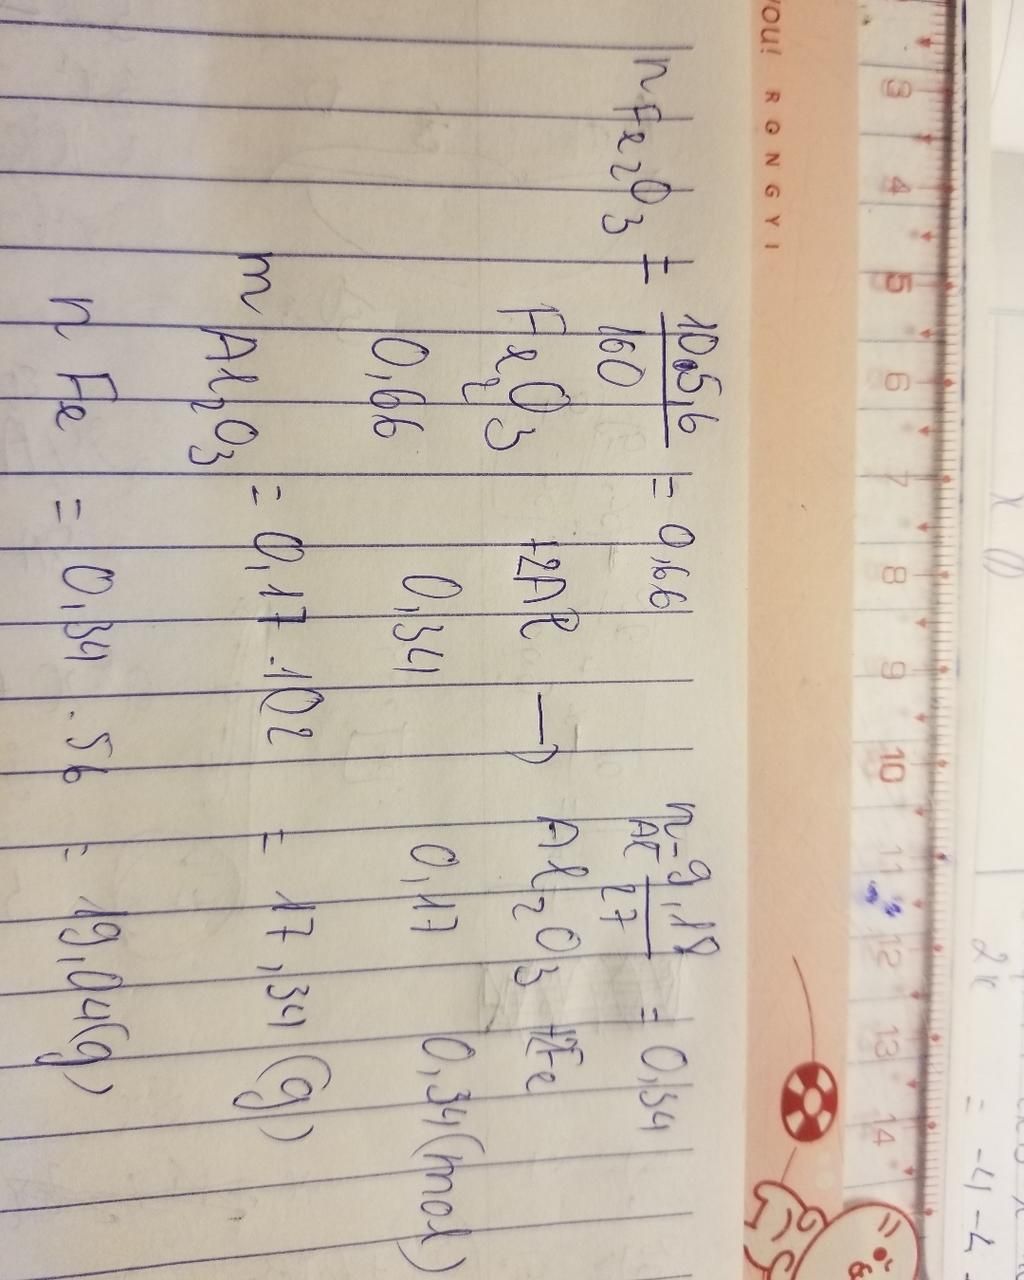 YOU! RGNGYI
3 4 5 6 7 8 9 10 11 12 13 14
n Fe2O3 = 105,6/160 = 0,66 n Al = 9,18/27 = 0,34
Fe2O3 + 2Al → Al2O3 + 2Fe
0,66 0,34 0,17 0,34 (mol)
m Al2O3 = 0,17 . 102 = 17,34 (g)
n Fe = 0,34 . 56 = 19,04 (g)
= -4 - 2